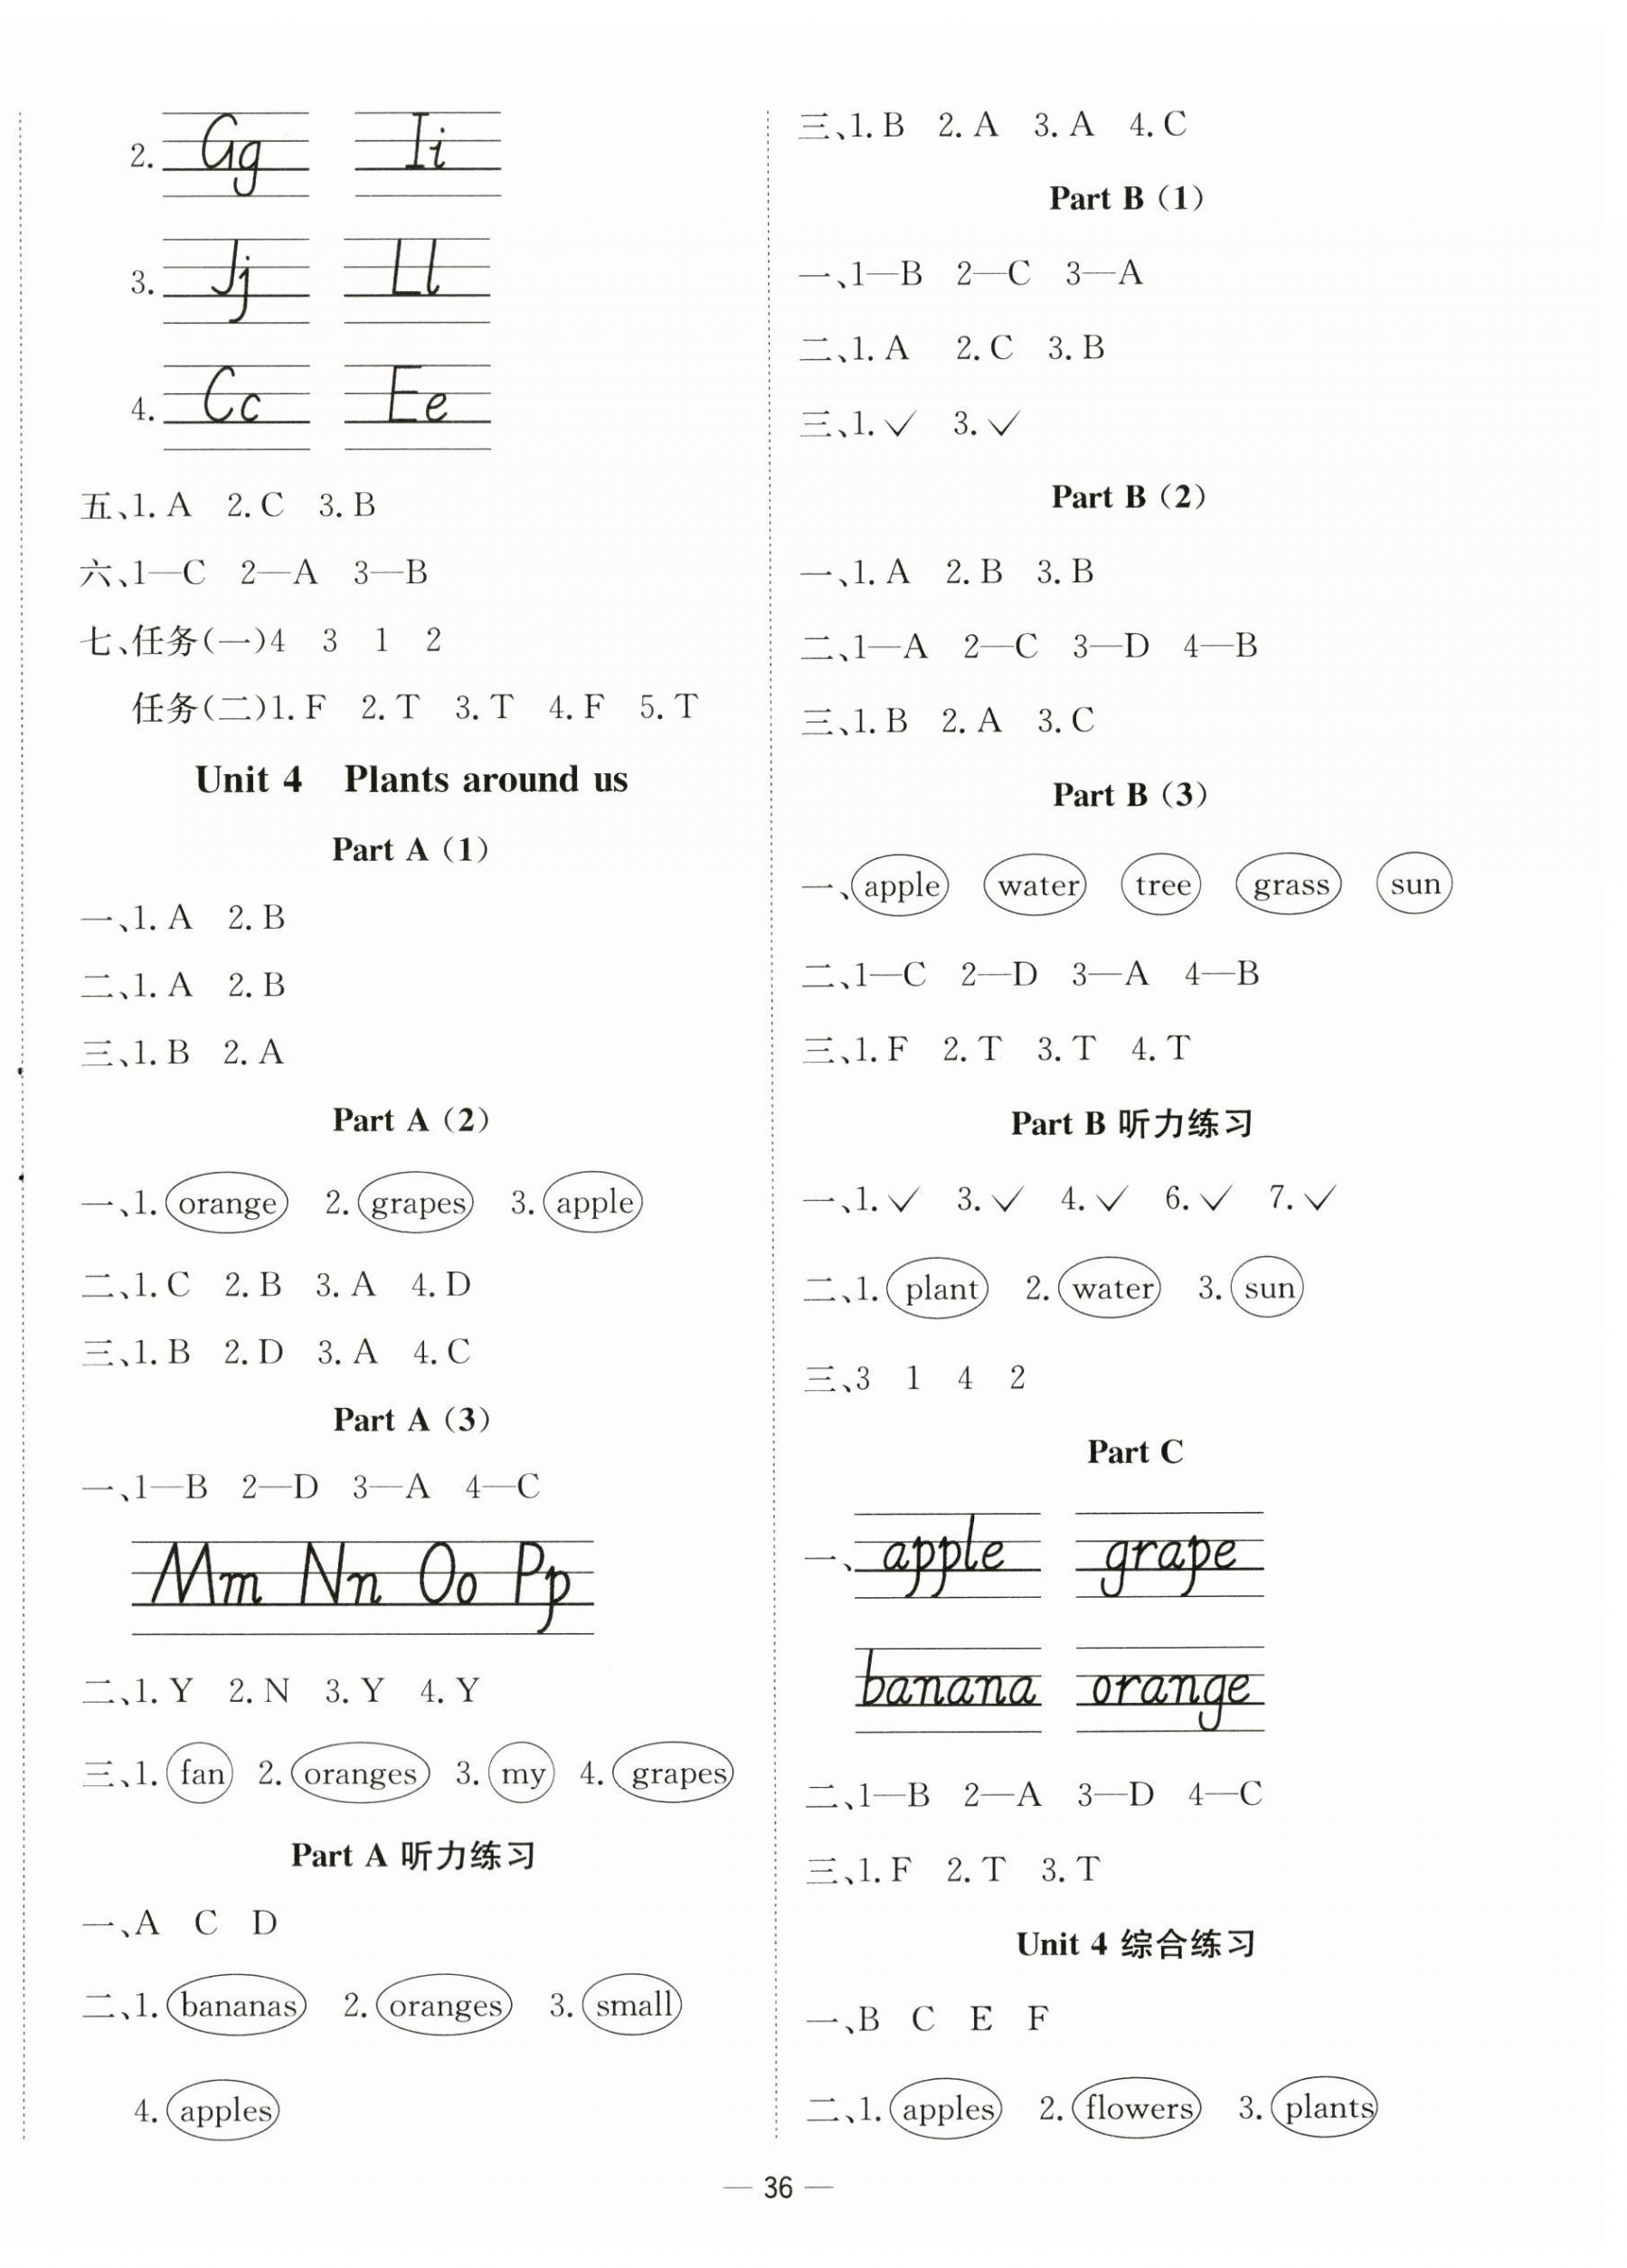 2. Gg Ii
3. Jj Ll
4. Cc Ee
五、1. A 2. C 3. B
六、1—C 2—A 3—B
七、任务(一)4 3 1 2
任务(二)1. F 2. T 3. T 4. F 5. T
Unit 4 Plants around us
Part A (1)
一、1. A 2. B
二、1. A 2. B
三、1. B 2. A
Part A (2)
一、1. orange 2. grapes 3. apple
二、1. C 2. B 3. A 4. D
三、1. B 2. D 3. A 4. C
Part A (3)
一、1—B 2—D 3—A 4—C
Mm Nn Oo Pp
二、1. Y 2. N 3. Y 4. Y
三、1. fan 2. oranges 3. my 4. grapes
Part A 听力练习
一、A C D
二、1. bananas 2. oranges 3. small
4. apples
三、1. B 2. A 3. A 4. C
Part B (1)
一、1—B 2—C 3—A
二、1. A 2. C 3. B
三、1. ✓ 3. ✓
Part B (2)
一、1. A 2. B 3. B
二、1—A 2—C 3—D 4—B
三、1. B 2. A 3. C
Part B (3)
一、apple water tree grass sun
二、1—C 2—D 3—A 4—B
三、1. F 2. T 3. T 4. T
Part B 听力练习
一、1. ✓ 3. ✓ 4. ✓ 6. ✓ 7. ✓
二、1. plant 2. water 3. sun
三、3 1 4 2
Part C
一、apple grape
banana orange
二、1—B 2—A 3—D 4—C
三、1. F 2. T 3. T
Unit 4 综合练习
一、B C E F
二、1. apples 2. flowers 3. plants
— 36 —